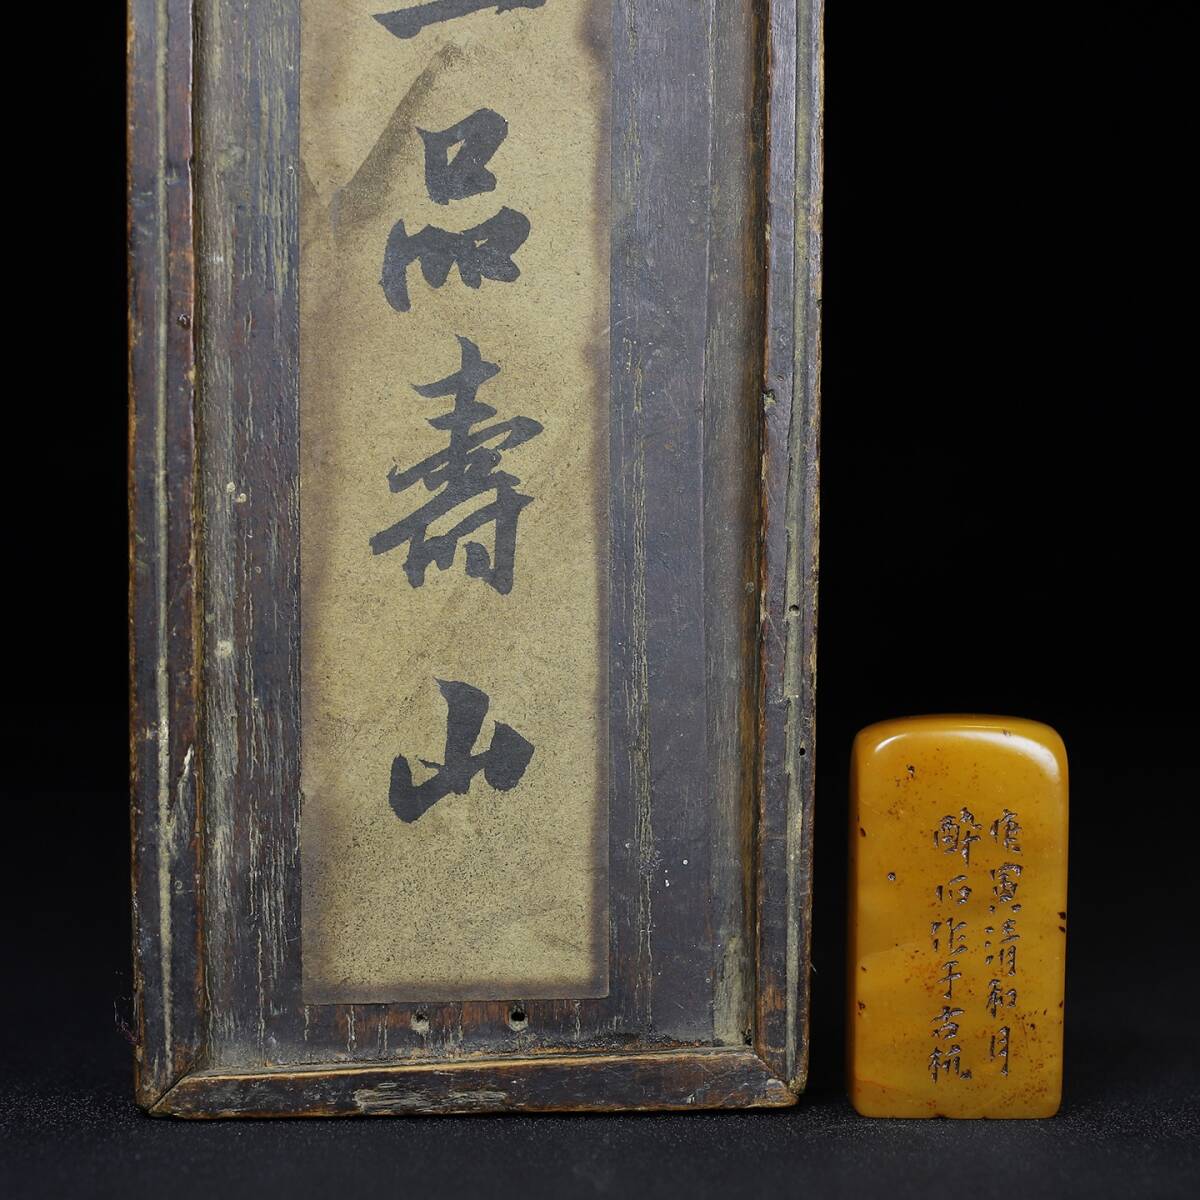 品壽山
庚寅清和月
醉石作于古杭